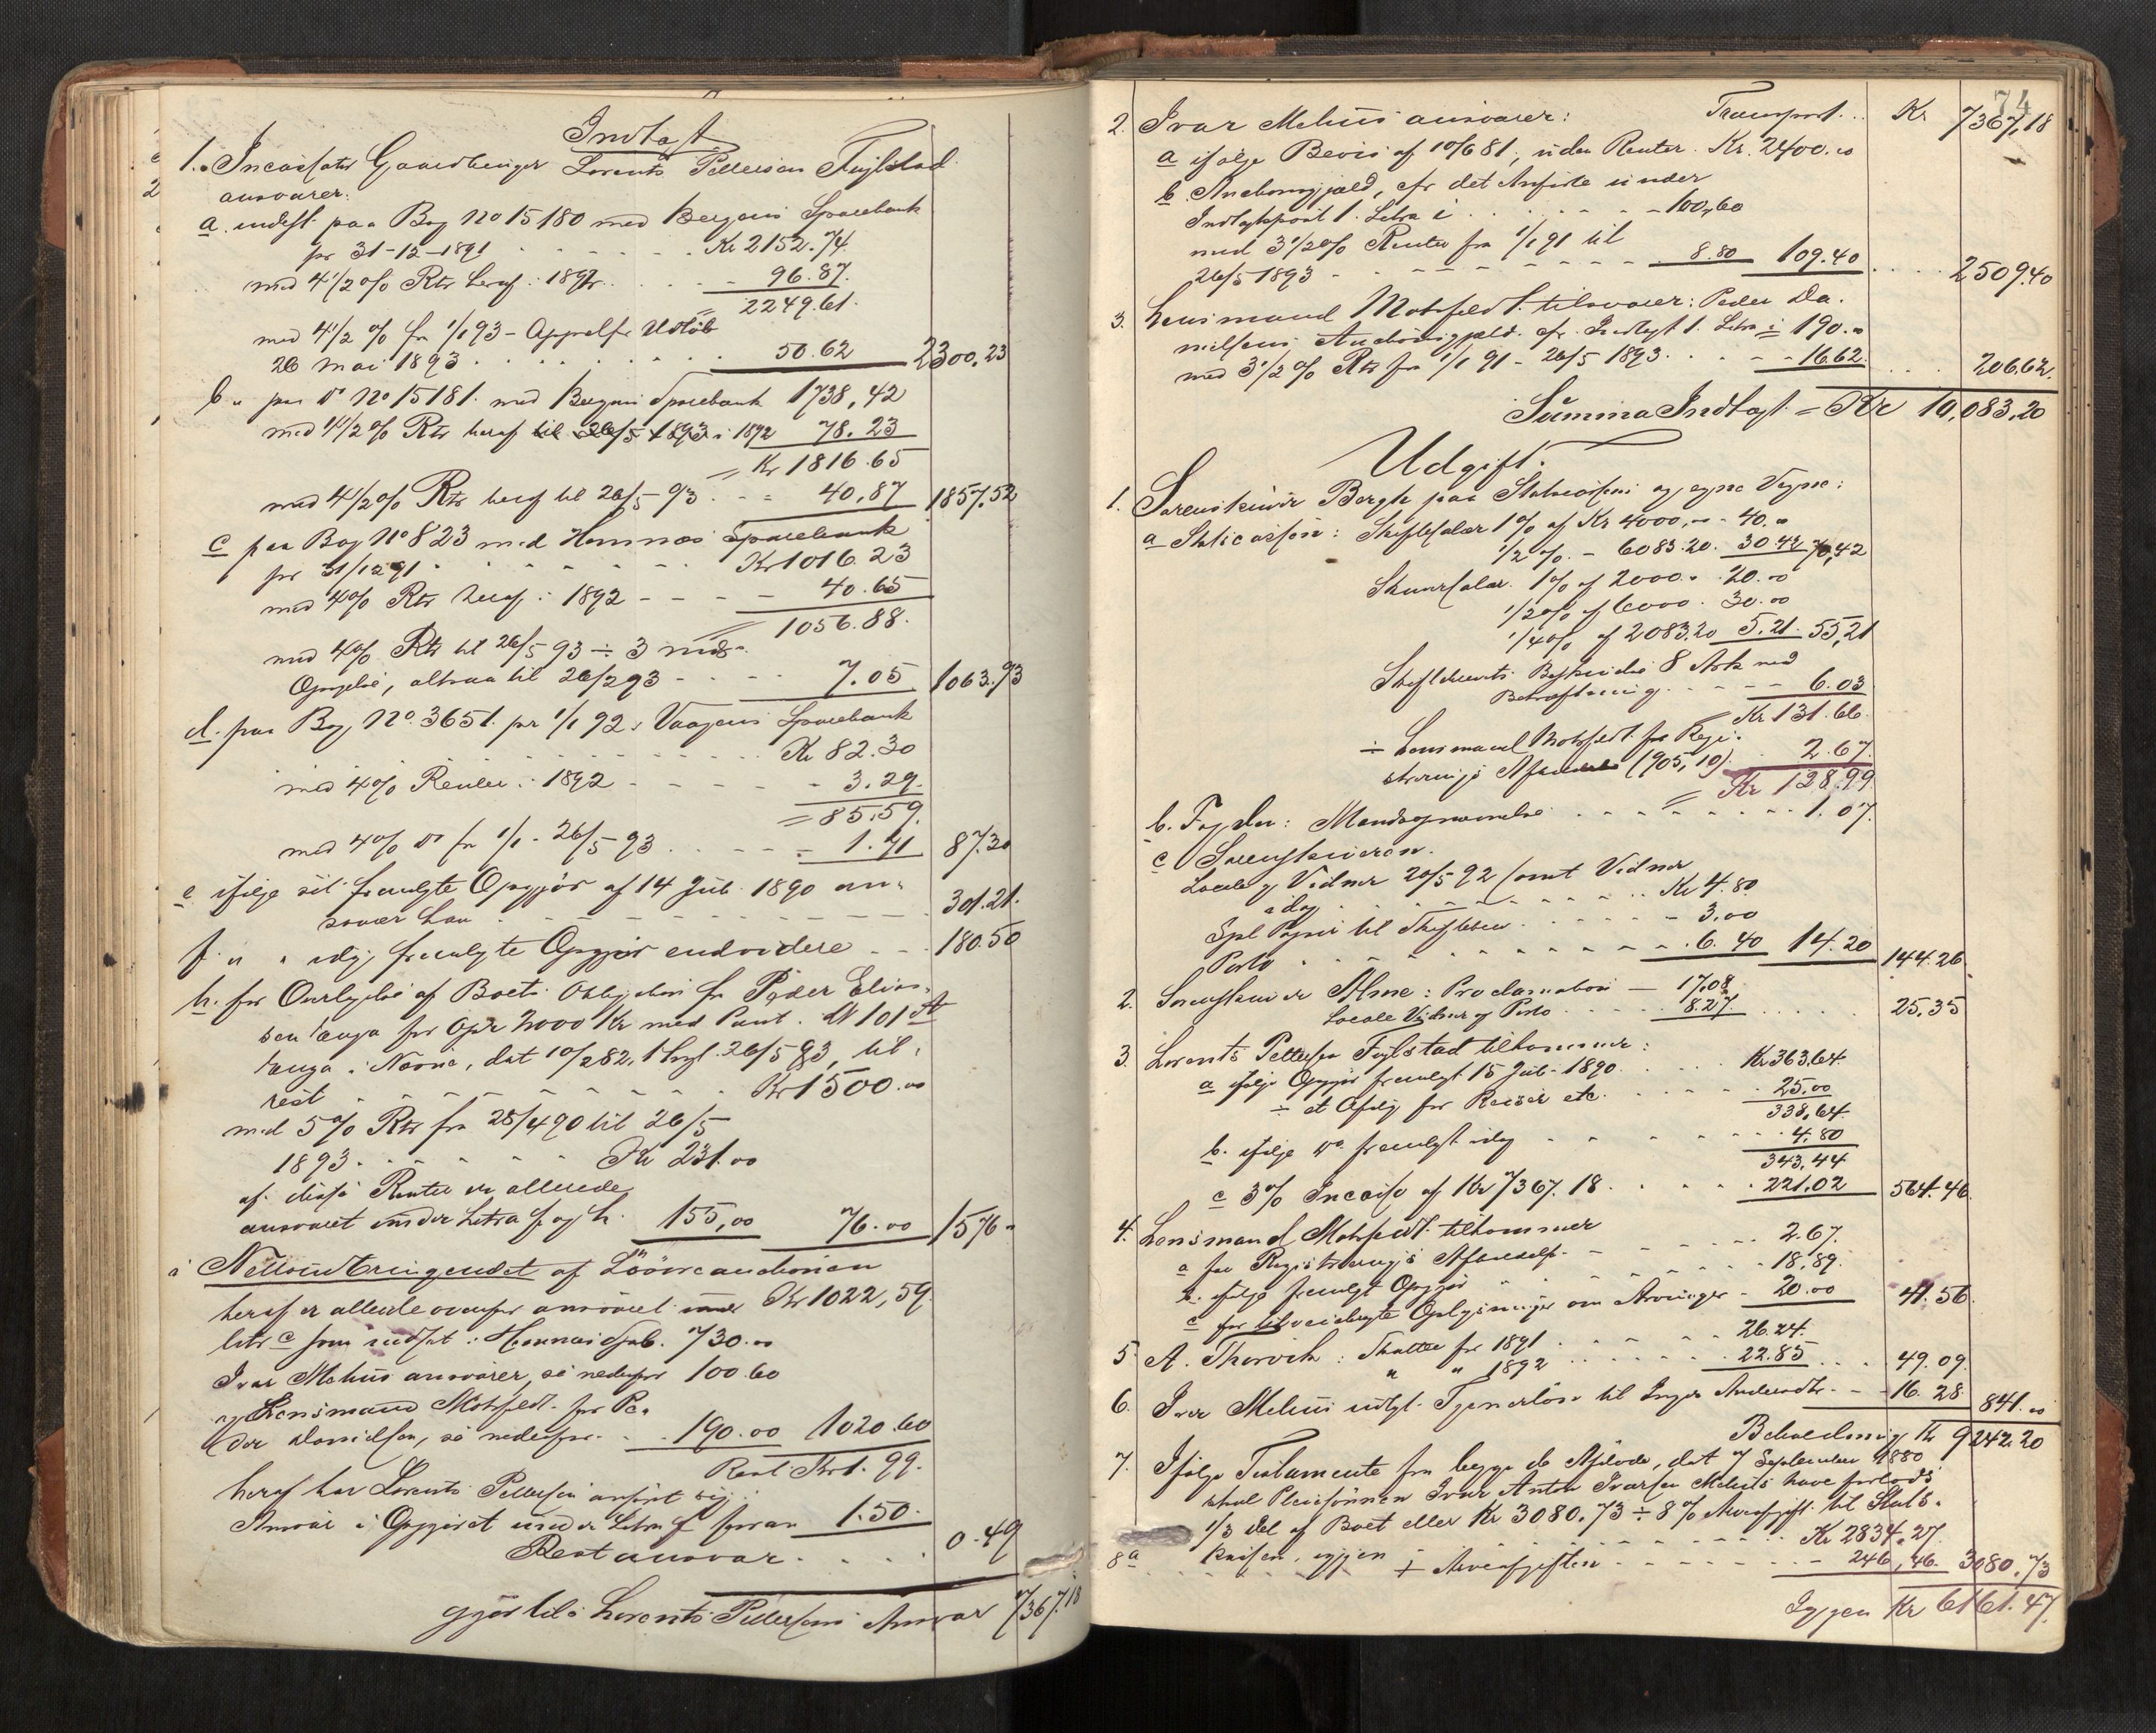 Indtægt.
1. Incassator Gaardbruger Lorents Pettersen Fuglstad
ansvarer:
a. indest. paa Bog No 15180 med Bergens Sparebank
pr 31-12-1891 . . . . . Kr 2152.74.
med 4 1/2 % Rtr heraf i 1892 . . . 96.87.
= 2249.61.
med 4 1/2 % fra 1/1 93 - Udløb
26 Mai 1893 . . . . . . 50.62 2300.23
b " paa do No 15181. med Bergens Sparebank 1738,42
med 4 1/2 % Rtr heraf til 26/5 1893 i 1892 78.23
= Kr 1816.65
med 4 1/2 % Rtr heraf til 26/5-93 . . - 40,87 1857.52
c paa Bog No 823 med Hemnæs Sparebank
pr 31/12 91 . . . . . Kr 1016.23
med 4 % Rtr heraf i 1892 - - - - 40.65
= 1056.88.
med 4 % Rtr til 26/5 93 ÷ 3 mds.
Opsigelse, altsaa til 26/2 93 - - - - 7.05 1063.93
d. paa Bog No. 3651. pr 1/1 92 i Vaagens Sparebank
. . . . . . Kr 82.30
med 4 % Renter i 1892 - - - - - 3.29.
= 85.59.
med 4 % do fra 1/1 - 26/5-93 . . . - 1.71 87.30
e ifølge sit fremlagte Opgjør af 14 Juli 1890 an-
svarer han . . . . . 301.21.
f. " " idag fremlagte Opgjør endvidere - - . 180.50
h. for Overtagelse af Boets Obligation fra Peder Elias-
sen for Opr 2000 Kr med Pant. i
i Nærøe, dat 10/2 82, thgl. 26/5 83, til
rest . . . . . . Kr 1500.00
med 5 % Rtr fra 28/4 90 til 26/5
1893 . . . . . Kr 231.00
af disse Renter er allerede
ansvaret under Litra f og h. 155,00 76.00 1576 "
i Nettoindbringendet af Løsøreauctionen
Kr 1022,59.
heraf er allerede ovenfor ansvaret under
litr c som indsat i Hemnæs Spb. 730.00
Ivar Mehus ansvarer, se nedenfor 100.60
og Lensmand Mohrfeldt for Pe-
der Danielsen, se nedenfor . . 190.00 1020.60
Rest Kr 1.99.
heraf har Lorents Pettersen anført sig
Ansvar i Opgjøret under Litra f foran 1.50.
Rest ansvar . . . . 0.49
gjør tils. Lorents Pettersens Ansvar 7367.18
74
Transport . . Kr 7367,18
2. Ivar Mehus ansvarer:
a ifølge Bevis af 10/6 81, uden Renter. Kr. 2400.00
b. Auctionsgjæld, cfr det Anførte under
Indtægtspost 1. Litra i . . . . . - 100,60
med 3 1/2 % Renter fra 1/1 91 til
26/5 1893 - - - - - - - 8.80 109.40 . . . . 2509.40
3. Lensmand Mohrfeldt tilsvarer: Peder Da-
nielsens Auctionsgjæld. cfr. Indtægt 1. Litra i 190.00
med 3 1/2 % Rtr fra 1/1 91 - 26/5 1893 . . . - 16.62. . . . 206.62.
Summa Indtægt = Kr 10,083,20
Udgift.
1. Sorenskriver Bergh paa Statscassens og egne Vegne:
a Statscassen: Skiftesalær 1 % af Kr 4000,00 - 40.00
1/2 % - 6083.20. 30.42 70,42
Skuursalær. 1 % af 2000.00 20.00
1/2 % af 6000 . 30.00
1/4 % af 2083.20 5.21. 55,21
Skiftebrevets Beskrivelse 8 Ark med
Bekræftning . . - - - 6.03
= Kr 131.66.
÷ Lensmand Mohrfeldt for Regi-
strerings Afskrift (905,10). . 2.67.
= Kr 128.99
b. Fogden: Mandsopnævnelse . . . . . . 1.07.
c Sorenskriveren.
Locale og Vidner 20/5 92 samt Vidner
idag . . . . . . . Kr 4.80
Spl Papir til Skiftebrev . . . . - 3.00
Porto . . . . . . . 6.40 14.20 144.26
2. Sorenskriver Alme: Proclamation - 17.08
Locale Vidner og Porto . . . . . 8.27. . . . . . 25.35
3. Lorents Pettersen Fuglstad tilkommer:
a ifølge Opgjør fremlagt 15 Juli 1890 . . . . Kr 363,64.
÷ et Afslag for Reiser etc. . . . . . 25.00
338,64.
b. ifølge do fremlagt idag - - . . . . 4.80
343,44
c 3 % Incasso af Kr 7367.18 . . . . . 221.02 564.46
4. Lensmand Mohrfeldt tilkommer
a for Registrerings Afskrift - - . . . 2.67.
b. ifølge fremlagt Opgjør . . . . . . 18.89.
c for tilveiebragte Oplysninger om Arvinger - 20.00 41.56
5. A. Thorvik: Skatter for 1891 . . . . . . 26.24.
" " 1892 . . . . . . 22.85 . . . 49.09
6. Iver Mehus udlgt. Tjenerløn til Inger Andersdtr. - - 16.28 841.00
Beholdning Kr 9242.20
7. Ifølge Testamente fra begge de Afdøde, dat 7 September 1880
skal Pleiesønnen Ivar Anton Ivarsen Mehus have forlods
1/3 del af Boet eller Kr 3080.73 ÷ 8 % Arveafgift til Stats-
. . . . . . . . Kr 2834.27.
8a kassen, igjen + Arveafgiften . . . . . - 246,46. 3080.73
Igjen Kr 6161.47.